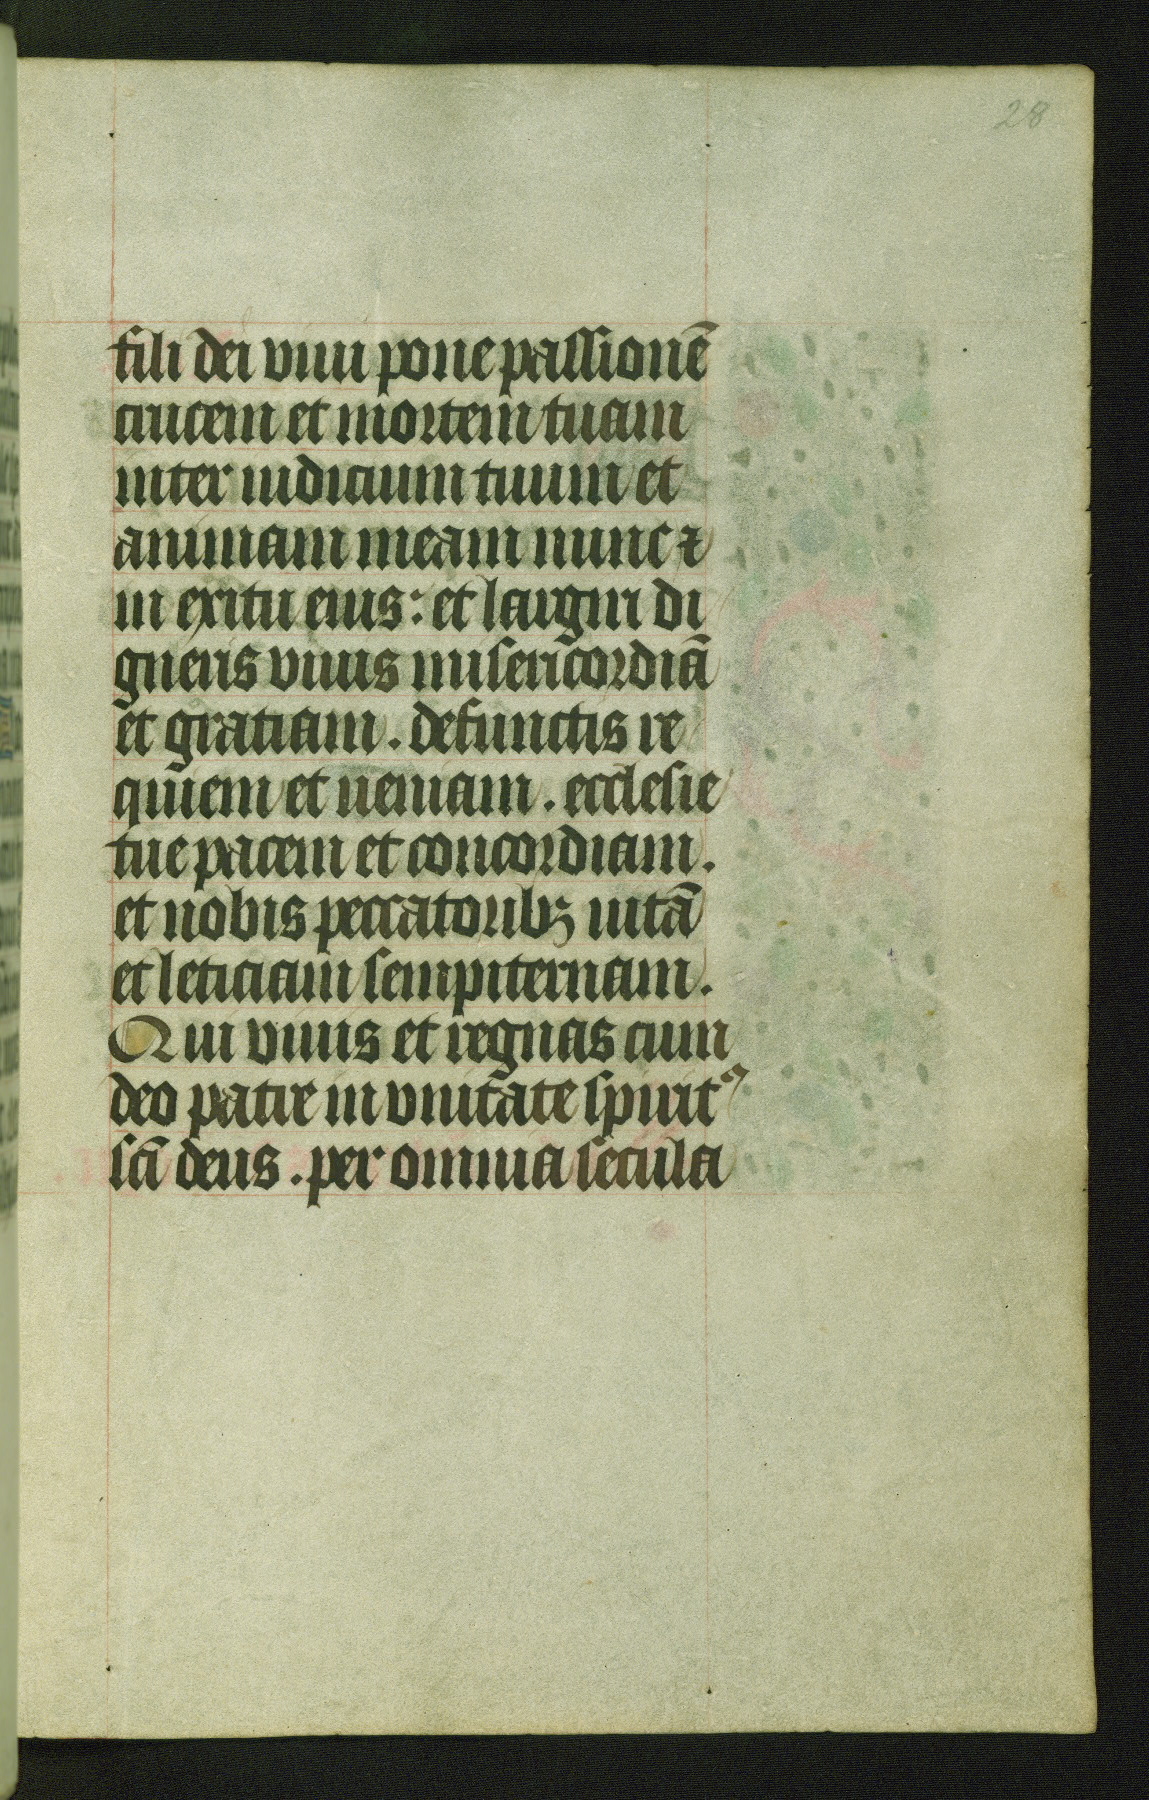 28
fili dei viui pone passionē
crucem et mortem tuam
inter iudicium tuum et
animam meam nunc ⁊
in exitu eius: et largiri di
gneris viuis misericordiā
et gratiam. defunctis re
quiem et ueniam. ecclesie
tue pacem et concordiam.
et nobis peccatoribꝫ uitā
et leticiam sempiternam.
Qui viuis et regnas cum
deo patre in vnitate spiritꝰ
scī deus. per omnia secula